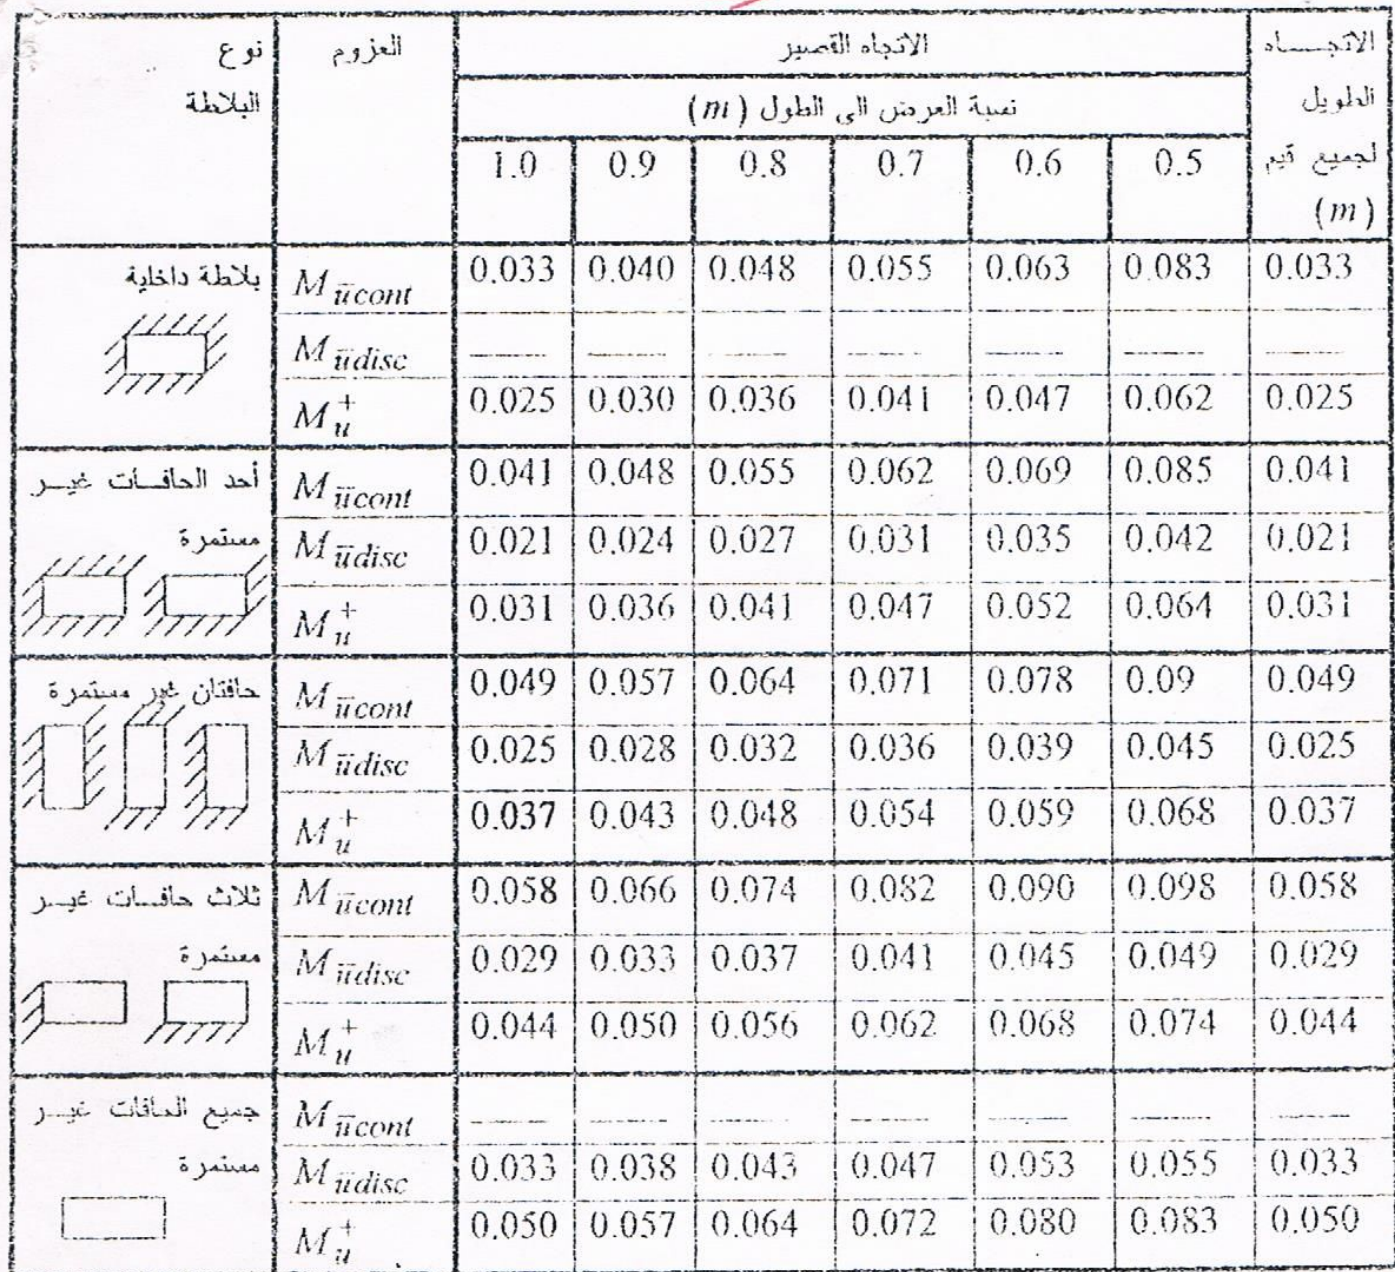 نوع البلاطة | العزوم | الاتجاه القصير | الاتجـــاه الطويل لجميع قيم (m)
نسبة العرض الى الطول (m)
1.0 | 0.9 | 0.8 | 0.7 | 0.6 | 0.5
بلاطة داخلية
M ūcont | 0.033 | 0.040 | 0.048 | 0.055 | 0.063 | 0.083 | 0.033
M ūdisc | — | — | — | — | — | — | —
M u+ | 0.025 | 0.030 | 0.036 | 0.041 | 0.047 | 0.062 | 0.025
أحد الحافـــات غيـــر مستمرة
M ūcont | 0.041 | 0.048 | 0.055 | 0.062 | 0.069 | 0.085 | 0.041
M ūdisc | 0.021 | 0.024 | 0.027 | 0.031 | 0.035 | 0.042 | 0.021
M u+ | 0.031 | 0.036 | 0.041 | 0.047 | 0.052 | 0.064 | 0.031
حافتان غير مستمرة
M ūcont | 0.049 | 0.057 | 0.064 | 0.071 | 0.078 | 0.09 | 0.049
M ūdisc | 0.025 | 0.028 | 0.032 | 0.036 | 0.039 | 0.045 | 0.025
M u+ | 0.037 | 0.043 | 0.048 | 0.054 | 0.059 | 0.068 | 0.037
ثلاث حافـــات غيـــر مستمرة
M ūcont | 0.058 | 0.066 | 0.074 | 0.082 | 0.090 | 0.098 | 0.058
M ūdisc | 0.029 | 0.033 | 0.037 | 0.041 | 0.045 | 0.049 | 0.029
M u+ | 0.044 | 0.050 | 0.056 | 0.062 | 0.068 | 0.074 | 0.044
جميع الحافات غيـــر مستمرة
M ūcont | — | — | — | — | — | — | —
M ūdisc | 0.033 | 0.038 | 0.043 | 0.047 | 0.053 | 0.055 | 0.033
M u+ | 0.050 | 0.057 | 0.064 | 0.072 | 0.080 | 0.083 | 0.050